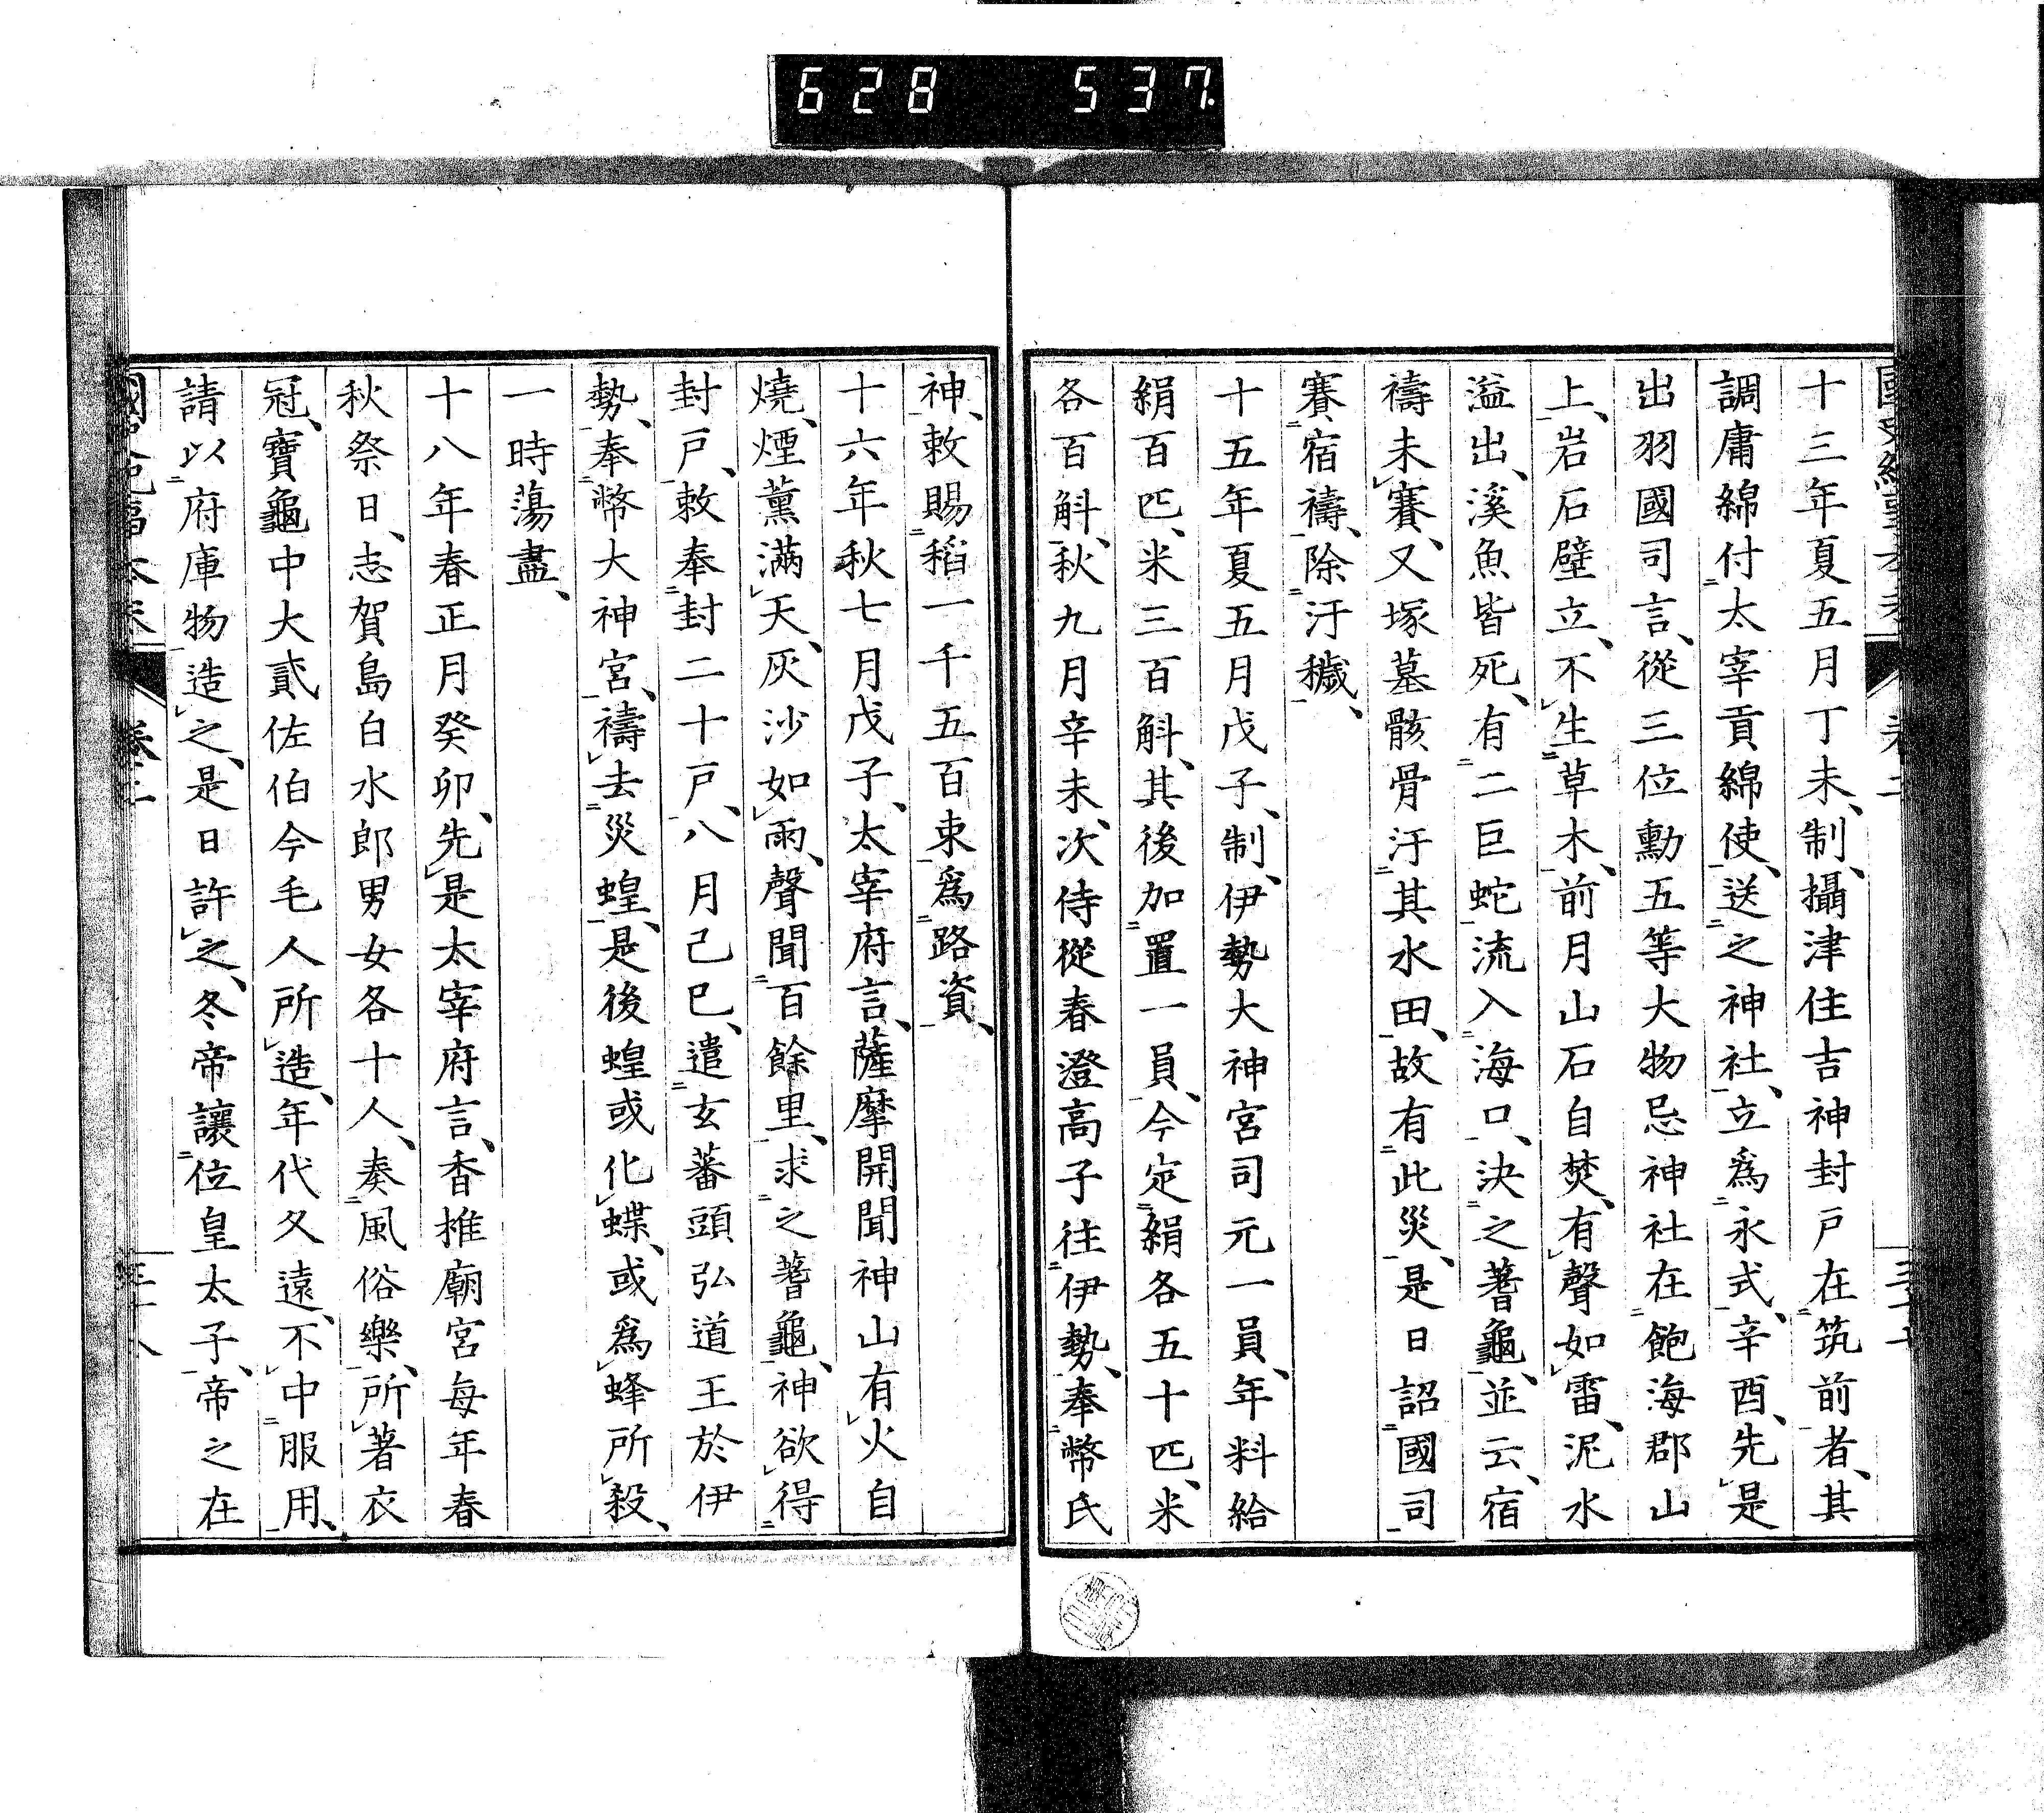 628 537.
十三年夏五月丁未、制、攝津住吉神封戸在筑前者、其
調庸綿付太宰貢綿使、送之神社、立爲永式、辛酉、先是
出羽國司言、從三位勳五等大物忌神社在飽海郡山
上、岩石壁立、不生草木、前月山石自焚、有聲如雷、泥水
溢出、溪魚皆死、有二巨蛇流入海口、決之蓍龜、並云、宿
禱未賽、又塚墓骸骨汙其水田、故有此災、是日詔國司
賽宿禱、除汙穢、
十五年夏五月戊子、制、伊勢大神宮司元一員、年料給
絹百匹、米三百斛、其後加置一員、今定絹各五十匹、米
各百斛、秋九月辛未、次侍從春澄高子往伊勢、奉幣氏
神、敕賜稻一千五百束爲路資、
十六年秋七月戊子、太宰府言、薩摩開聞神山有火自
燒、煙薰滿天、灰沙如雨、聲聞百餘里、求之蓍龜、神欲得
封戸、敕奉封二十戸、八月己巳、遣玄蕃頭弘道王於伊
勢、奉幣大神宮、禱去災蝗、是後蝗或化蝶、或爲蜂所殺、
一時蕩盡、
十八年春正月癸卯、先是太宰府言、香椎廟宮每年春
秋祭日、志賀島白水郎男女各十人、奏風俗樂、所著衣
冠、寶龜中大貳佐伯今毛人所造、年代久遠、不中服用、
請以府庫物造之、是日許之、冬帝讓位皇太子、帝之在